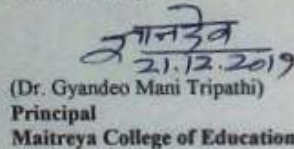 ज्ञानदेव
21.12.2019
(Dr. Gyandeo Mani Tripathi)
Principal
Maitreya College of Education